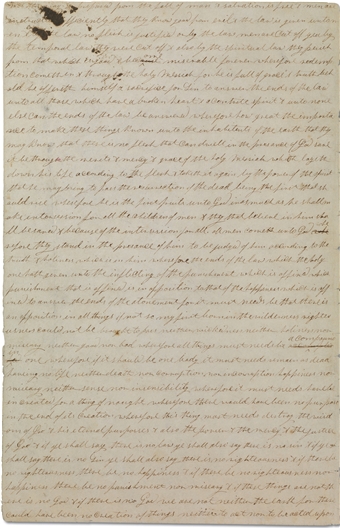 from the fall of man & salvation is free & men are
sufficiently that they know good from evil & the law is given unto
the law no flesh is justified or by the law men are cut off yea by
the temporal law they were cut off & also by the spiritual law they perish
from that which is good & become miserable forever wherefore redemp
tion cometh in & through the holy Messiah for he is full of grace & truth beh
old he offereth himself a sacrifice for Sin to answer the ends of the law
unto all those which have a broken heart & a contrite spirit & unto none
else can the ends of the law be answered wherefore how great the importa
nce to make these things known unto the inhabitants of the earth that they
may know that there is no flesh that can dwell in the presence of God save
it be through the merits & mercy & grace of the holy Messiah which layeth
down his life according to the flesh & taketh it again by the power of the spirit
that he may bring to pass the resurrection of the dead being the first that sh
ould rise wherefore he is the first fruits unto God inasmuch as he shall m
ake intersession for all the children of men & they that believe in him shall
be saved & because of the intersession for all all men cometh unto God wh
erefore they stand in the presence of him to be judged of him according to the
truth & holiness which is in him wherefore the ends of the law which the holy
one hath given unto the inflicting of the punishment which is affixed which
punishment that is affixed is in opposition to that of the happiness which is aff
ixed to answer the ends of the atonement for it must needs be that there is
an opposition in all things if not so my first born in the wilderness righteo
usness could not be brought to pass neither wickedness neither holiness nor
misery neither good nor bad wherefore all things must needs be a compound
in one wherefore if it should be one body it must needs remain as dead
having no life neither death nor corruption nor incorruption happiness nor
misery neither sense nor insensibility wherefore it must needs have be
en created for a thing of naught wherefore there would have been no purpose
in the end of its creation wherefore this thing must needs destroy the wisd
om of God & his eternal purposes & also the power & the mercy & the justice
of God & if ye shall say there is no law ye shall also say there is no sin & if ye
shall say there is no sin ye shall also say there is no righteousness & if there be
no righteousness there be no happiness & if there be no righteousness nor
happiness there be no punishment nor misery & if these things are not th
ere is no God & if there is no God we are not neither the earth for there
could have been no creation of things neither to act nor to be acted upon